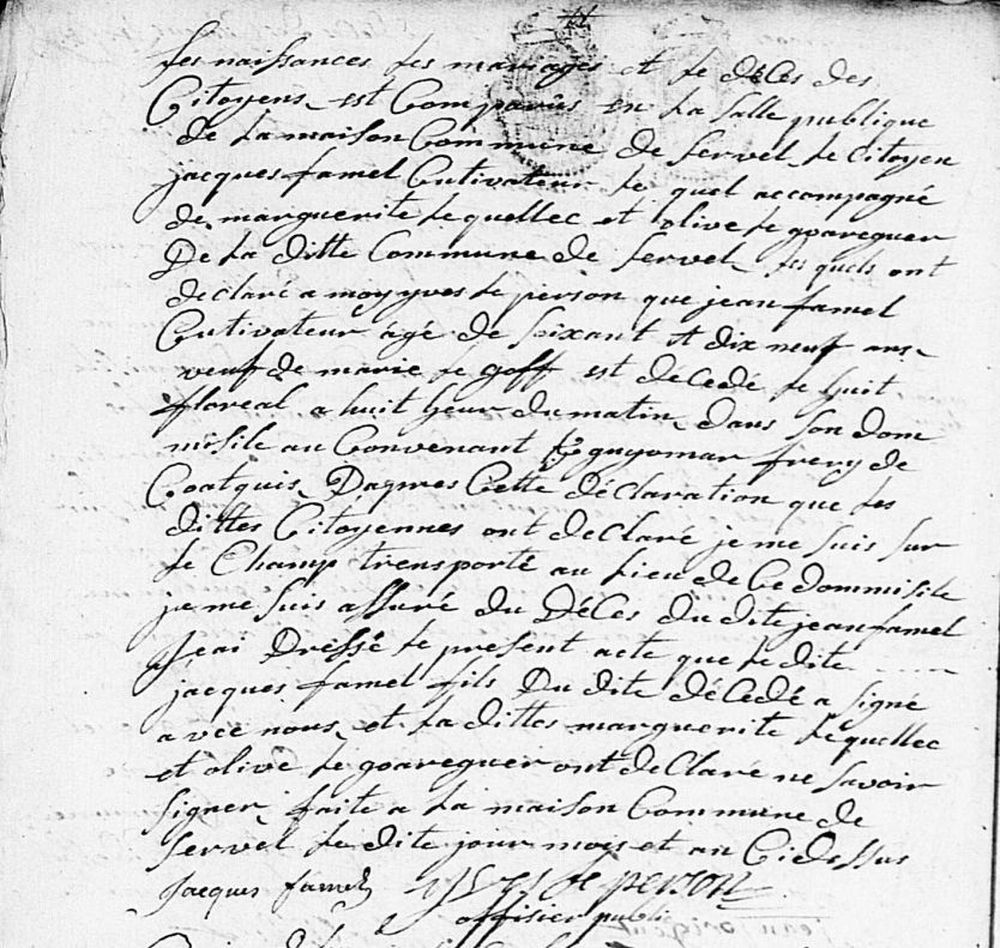 les naissances les mariages et le déces des
Citoyens est Comparus en la salle publique
de la maison Commune de servel le Citoyen
jacques famel Cutivateur le quel accompagné
de marguerite le quellec et olive le goareguer
De la ditte Commune de servel les quels ont
declaré a moy yves le person que jean famel
Cutivateur agé de soixant et dix neuf ans
veuf de marie le goff est décedé le huit
floreal a huit heur du matin dans son dom
misile au Convenant guyomar frery de
Coatquis Dapres Cette déclaration que les
dittes Citoyennes ont declaré je me suis sur
le Champ trensporté au lieu de Ce dommisile
je me suis assuré du Déces du dite jean famel
jeai Dressé le present acte que le dite
jacques famel fils Du dite décedé a signé
avec nous et la dittes marguerite le quellec
et olive le goareguer ont declaré ne savoir
signer faite a la maison Commune de
servel le dite jour mois et an Cidessus
jacques famel yves le person
offisier public